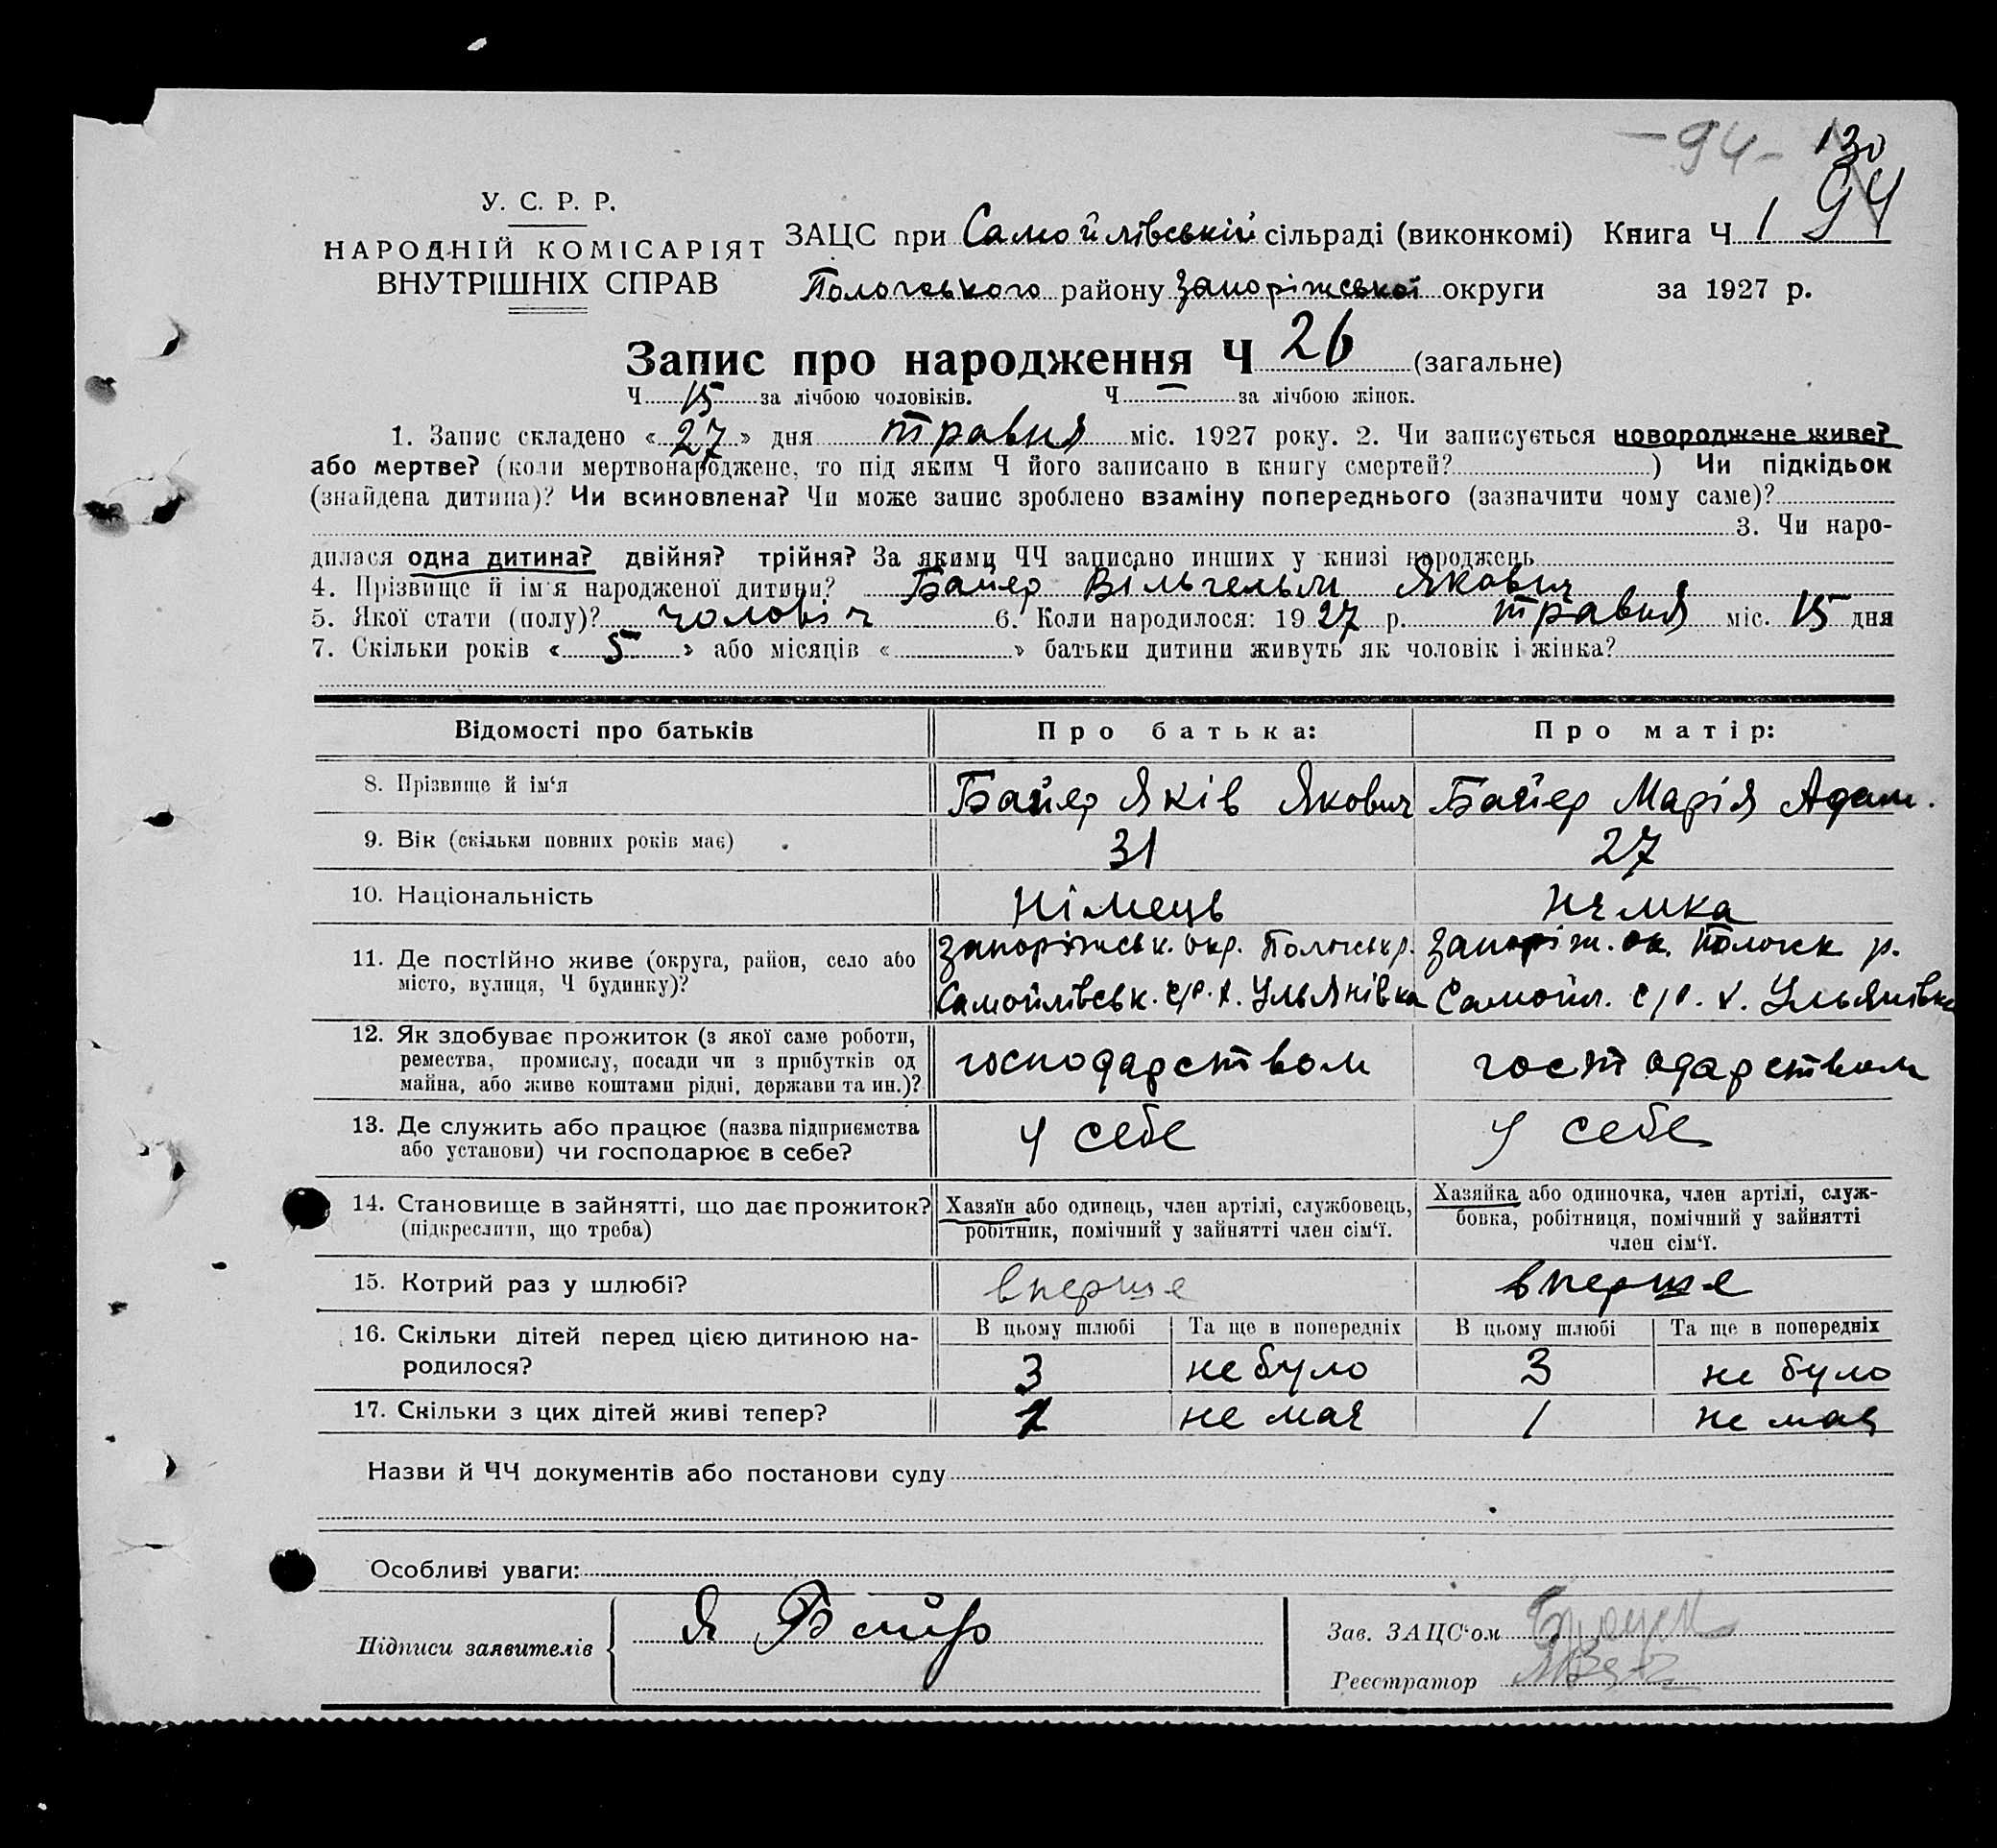 -94- 130
94
У. С. Р. Р.
НАРОДНІЙ КОМІСАРІЯТ
ВНУТРІШНІХ СПРАВ
ЗАЦС при Самойлівській сільраді (виконкомі) Книга Ч 1
Пологського району Запоріжської округи за 1927 р.
Запис про народження Ч 26 (загальне)
Ч 15 за лічбою чоловіків. Ч — за лічбою жінок.
1. Запис складено « 27 » дня травня міс. 1927 року. 2. Чи записується новороджене живе?
або мертве? (коли мертвонароджене, то під яким Ч його записано в книгу смертей? ) Чи підкідьок
(знайдена дитина)? Чи всиновлена? Чи може запис зроблено взаміну попереднього (зазначити чому саме)?
3. Чи наро-
дилася одна дитина? двійня? трійня? За якими ЧЧ записано инших у книзі народжень
4. Прізвище й ім'я народженої дитини? Байер Вільгельм Якович
5. Якої стати (полу)? чоловіч 6. Коли народилося: 19 27 р. травня міс. 15 дня
7. Скільки років « 5 » або місяців « » батьки дитини живуть як чоловік і жінка?
Відомості про батьків Про батька: Про матір:
8. Прізвище й ім'я Байер Яків Якович Байер Марія Адам.
9. Вік (скільки повних років має) 31 27
10. Національність Німець Нємка
11. Де постійно живе (округа, район, село або Запоріжськ. окр. Пологськ р. Запоріж. ок. Пологск р.
місто, вулиця, Ч будинку)? Самойлівськ. с/р. х. Ульянівка Самойл. с/р. х. Ульянівка
12. Як здобуває прожиток (з якої саме роботи,
ремества, промислу, посади чи з прибутків од господарством господарством
майна, або живе коштами рідні, держави та ин.)?
13. Де служить або працює (назва підприємства у себе у себе
або установи) чи господарює в себе?
14. Становище в зайнятті, що дає прожиток? Хазяїн або одинець, член артілі, службовець, Хазяйка або одиночка, член артілі, служ-
(підкреслити, що треба) робітник, помічний у зайнятті член сім'ї. бовка, робітниця, помічний у зайнятті
член сім'ї.
15. Котрий раз у шлюбі? вперше вперше
16. Скільки дітей перед цією дитиною на- В цьому шлюбі Та ще в попередніх В цьому шлюбі Та ще в попередніх
родилося? 3 не було 3 не було
17. Скільки з цих дітей живі тепер? 1 не має 1 не має
Назви й ЧЧ документів або постанови суду
Особливі уваги:
Підписи заявителів Я Байер
Зав. ЗАЦС'ом
Реєстратор